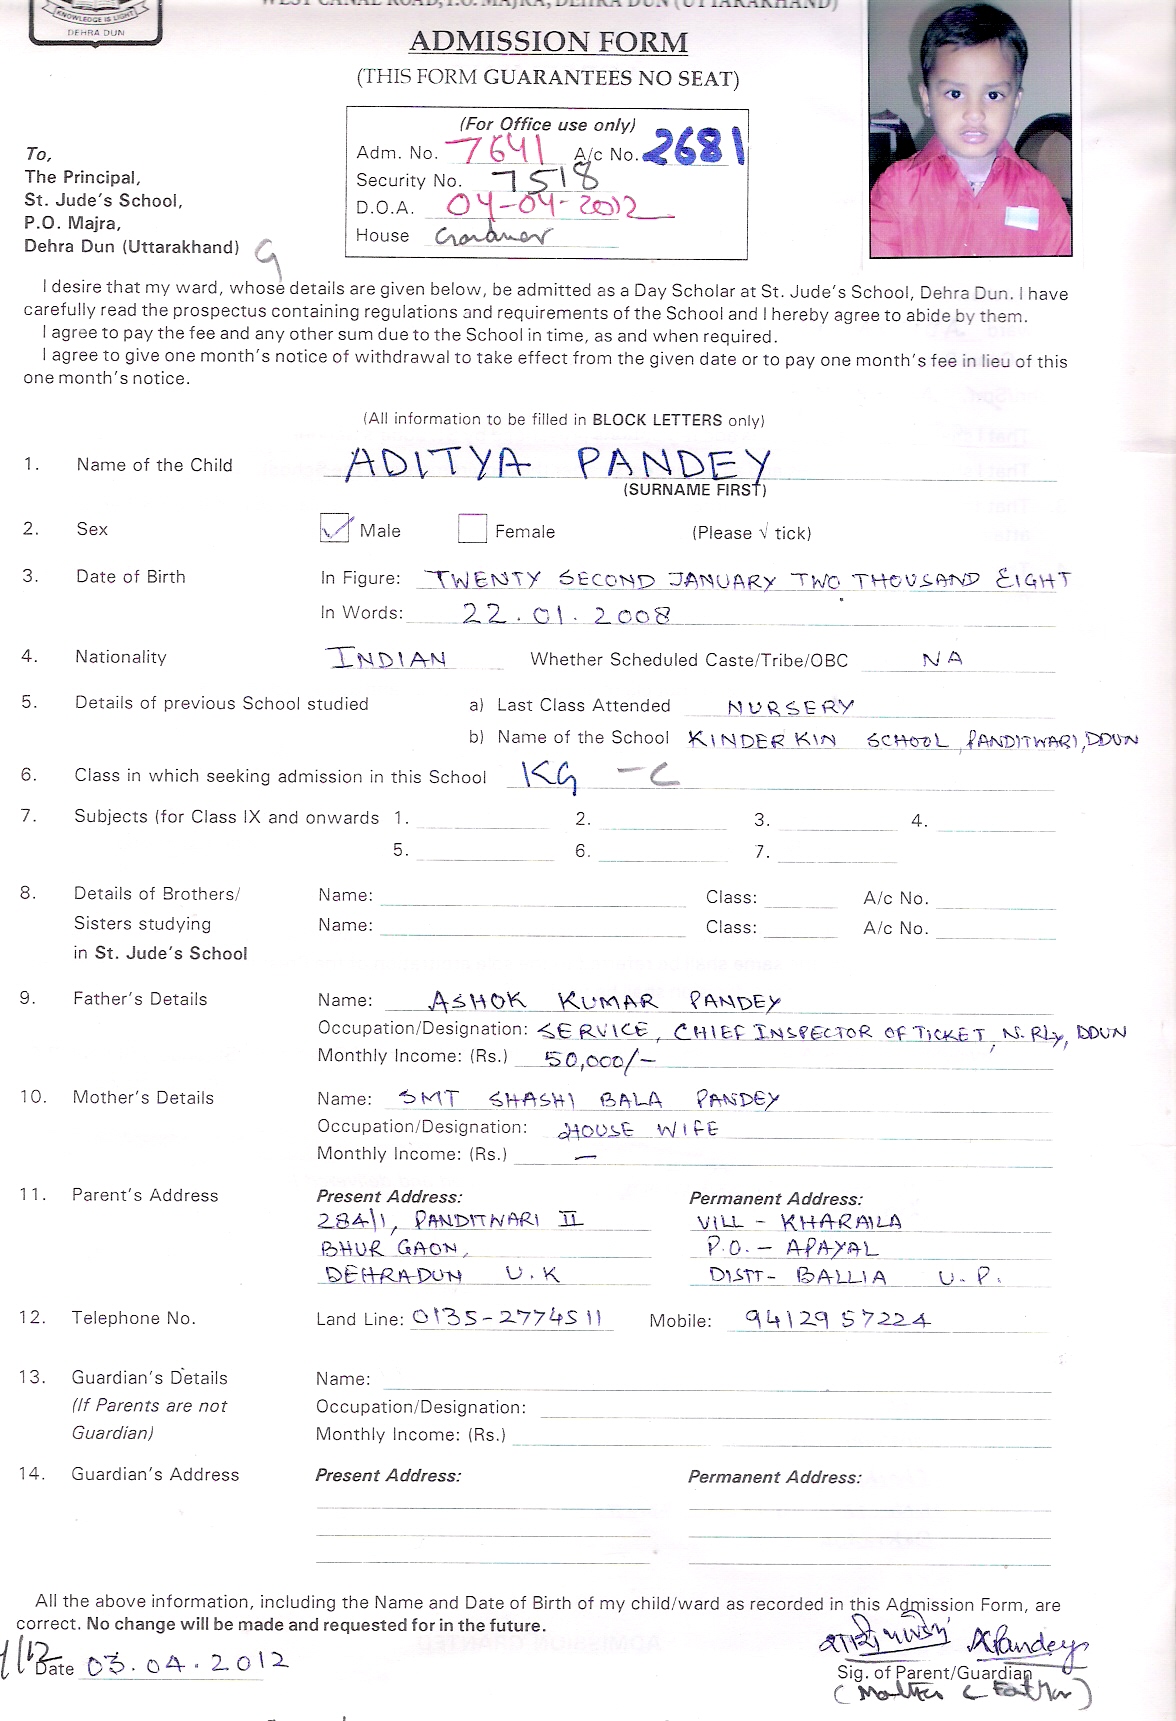 KNOWLEDGE IS LIGHT
DEHRA DUN
WEST CANAL ROAD, P.O. MAJRA, DEHRA DUN (UTTARAKHAND)
ADMISSION FORM
(THIS FORM GUARANTEES NO SEAT)
(For Office use only)
Adm. No. 7641 A/c No. 2681
Security No. 7518
D.O.A. 04-04-2012
House
To,
The Principal,
St. Jude's School,
P.O. Majra,
Dehra Dun (Uttarakhand) G
I desire that my ward, whose details are given below, be admitted as a Day Scholar at St. Jude's School, Dehra Dun. I have
carefully read the prospectus containing regulations and requirements of the School and I hereby agree to abide by them.
I agree to pay the fee and any other sum due to the School in time, as and when required.
I agree to give one month's notice of withdrawal to take effect from the given date or to pay one month's fee in lieu of this
one month's notice.
(All information to be filled in BLOCK LETTERS only)
1. Name of the Child ADITYA PANDEY
(SURNAME FIRST)
2. Sex Male Female (Please √ tick)
3. Date of Birth In Figure: TWENTY SECOND JANUARY TWO THOUSAND EIGHT
In Words: 22.01.2008
4. Nationality INDIAN Whether Scheduled Caste/Tribe/OBC NA
5. Details of previous School studied a) Last Class Attended NURSERY
b) Name of the School KINDER KIN SCHOOL, PANDITWARI, DDUN
6. Class in which seeking admission in this School KG - C
7. Subjects (for Class IX and onwards 1. 2. 3. 4.
5. 6. 7.
8. Details of Brothers/ Name: Class: A/c No.
Sisters studying Name: Class: A/c No.
in St. Jude's School
9. Father's Details Name: ASHOK KUMAR PANDEY
Occupation/Designation: SERVICE, CHIEF INSPECTOR OF TICKET, N. RLY, DDUN
Monthly Income: (Rs.) 50,000/-
10. Mother's Details Name: SMT SHASHI BALA PANDEY
Occupation/Designation: HOUSE WIFE
Monthly Income: (Rs.) —
11. Parent's Address Present Address: Permanent Address:
284/1, PANDITWARI II VILL - KHARAILA
BHUR GAON, P.O. - APAYAL
DEHRADUN U.K DISTT- BALLIA U.P.
12. Telephone No. Land Line: 0135-2774511 Mobile: 9412957224
13. Guardian's Details Name:
(If Parents are not Occupation/Designation:
Guardian) Monthly Income: (Rs.)
14. Guardian's Address Present Address: Permanent Address:
All the above information, including the Name and Date of Birth of my child/ward as recorded in this Admission Form, are
correct. No change will be made and requested for in the future.
Date 03.04.2012 APandey
Sig. of Parent/Guardian
(Mother & Father)